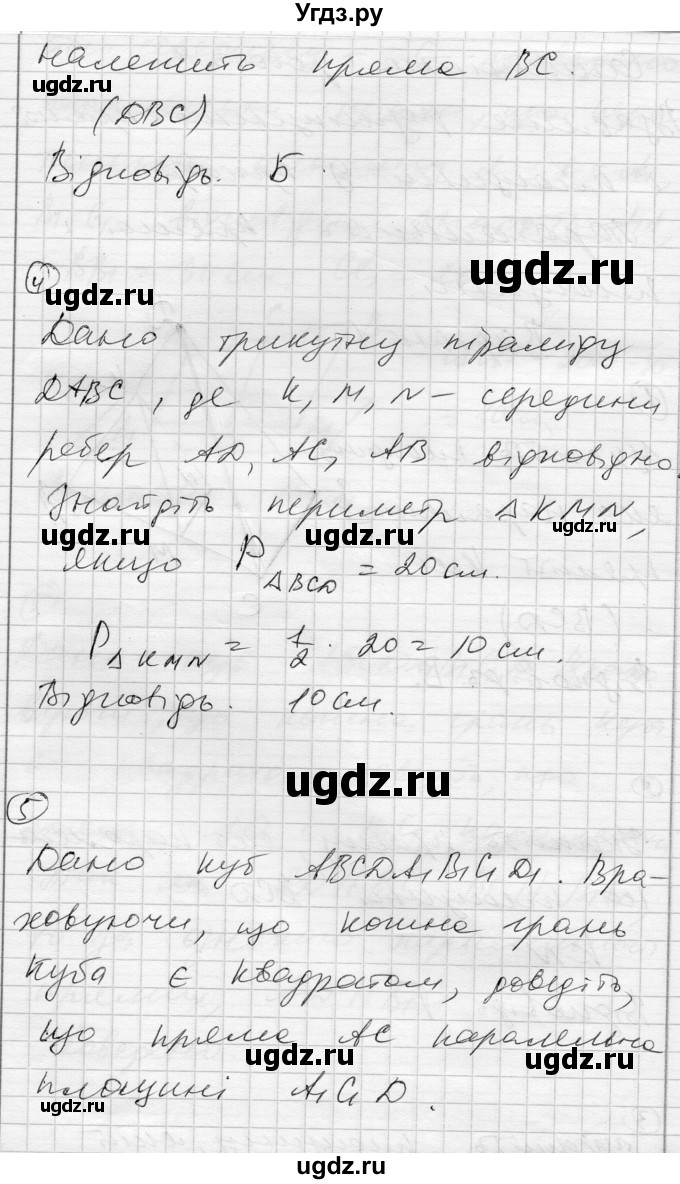 Угдз.ру
належить пряма BC.
ugdz.ru
(DBC)
Відповідь. Б.
ugdz.ru
4
ugdz.ru
Дано трикутну піраміду
DABC, де K, M, N – середини
ребер AD, AC, AB відповідно.
Знайдіть периметр ΔKMN,
ugdz.ru ugdz.ru
якщо P ΔBCD = 20 см.
P ΔKMN = 1/2 · 20 = 10 см.
Відповідь. 10 см.
ugdz.ru
5
Дано куб ABCDA₁B₁C₁D₁. Вра-
ховуючи, що кожна грань
куба є квадратом, доведіть,
що пряма AC паралельна
ugdz.ru ugdz.ru
площині A₁C₁D.
ugdz.ru
ugdz.ru